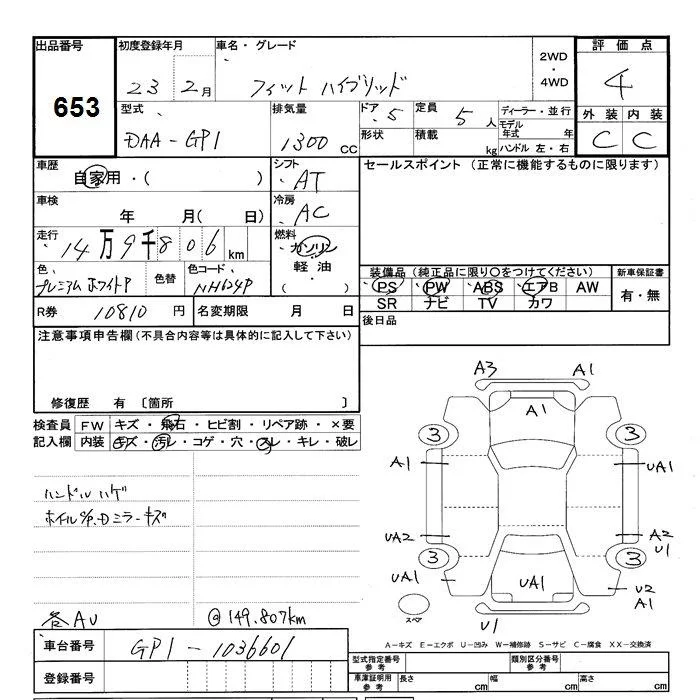 出品番号 初度登録年月 車名・グレード 2WD・4WD 評価点
653 23 2月 フィット ハイブリッド 4
型式 排気量 ドア 5 定員 5人 ディーラー・並行 外装 内装
DAA-GP1 1300cc 形状 積載 kg モデル年式 年 ハンドル 左・右 C C
車歴 自家用・( ) シフト AT セールスポイント(正常に機能するものに限ります)
車検 年 月( 日) 冷房 AC
走行 14万9千806km 燃料 ガソリン 軽油・( )
色 プレミアムホワイトP 色替 色コード NH624P
装備品(純正品に限り○をつけてください) 新車保証書
PS PW ABS エアB AW 有・無
SR ナビ TV カワ
R券 10810円 名変期限 月 日 後日品
注意事項申告欄(不具合内容等は具体的に記入して下さい)
修復歴 有 〔箇所 〕
検査員 FW キズ・飛石・ヒビ割・リペア跡・×要
記入欄 内装 キズ・汚レ・コゲ・穴・スレ・キレ・破レ
ハンドルハゲ
ホイルC/P.Dミラーキズ
各AU @149.807km
A3 A1
A1
3 3
A1 UA1
UA2 A2
U1
3 3
UA1 UA1 U2
A1
スペア U1
A-キズ E-エクボ U-凹み W-補修跡 S-サビ C-腐食 XX-交換済
車台番号 GP1-1036601
登録番号
型式指定番号 参考 類別区分番号 参考
車庫証明用 参考 長さ cm 幅 cm 高さ cm